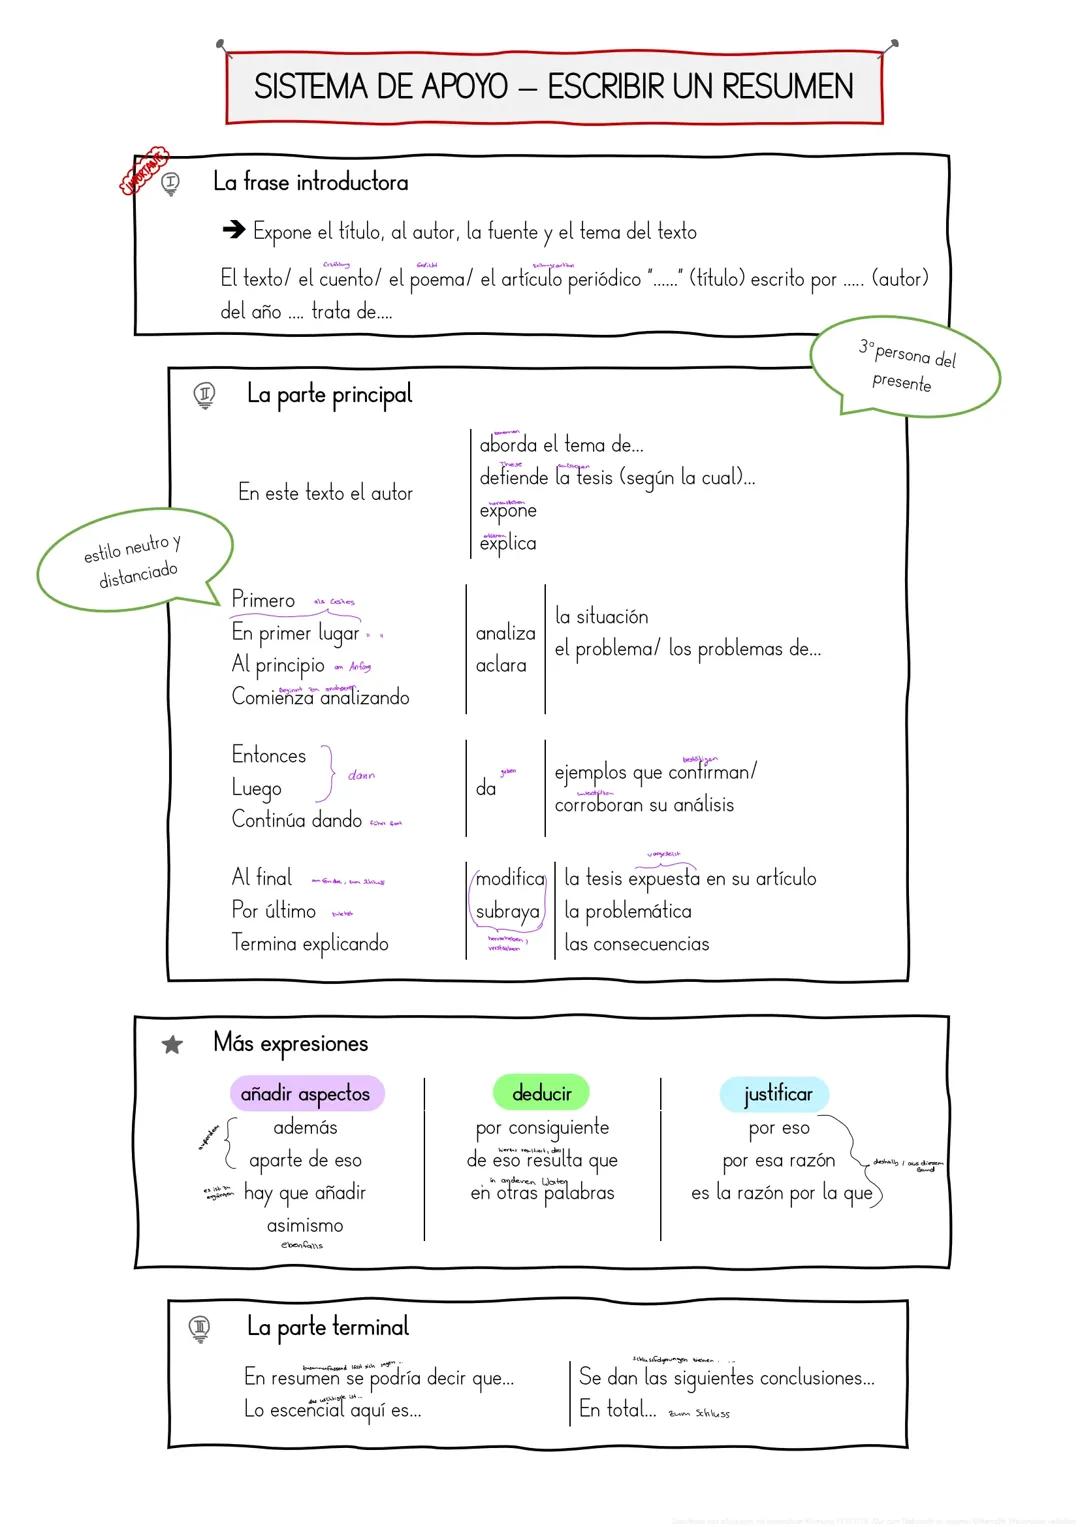 SISTEMA DE APOYO – ESCRIBIR UN RESUMEN
IMPORTANTE
I
La frase introductora
➔ Expone el título, al autor, la fuente y el tema del texto
Erzählung Gedicht
El texto/ el cuento/ el poema/ el artículo periódico "......" (título) escrito por ..... (autor)
del año .... trata de....
3ª persona del
presente
II
La parte principal
En este texto el autor
aborda el tema de...
These
defiende la tesis (según la cual)...
expone
erklären
explica
estilo neutro y
distanciado
Primero als Erstes
En primer lugar " "
Al principio am Anfang
Comienza analizando
analiza
aclara
la situación
el problema/ los problemas de...
Entonces
Luego
dann
Continúa dando führt fort
geben
da
bestätigen
ejemplos que confirman/
corroboran su análisis
Al final am Ende, zum Schluss
Por último zuletzt
Termina explicando
modifica
subraya
hervorheben,
verstärken
vorgestellt
la tesis expuesta en su artículo
la problemática
las consecuencias
Más expresiones
añadir aspectos
außerdem
además
aparte de eso
es ist zu
ergänzen
hay que añadir
asimismo
ebenfalls
deducir
por consiguiente
hieraus resultiert, dass
de eso resulta que
in anderen Worten
en otras palabras
justificar
por eso
por esa razón
es la razón por la que
deshalb / aus diesem
Grund
III
La parte terminal
zusammenfassend lässt sich sagen...
En resumen se podría decir que...
das wichtigste ist...
Lo escencial aquí es...
Schlussfolgerungen
Se dan las siguientes conclusiones...
En total... zum Schluss